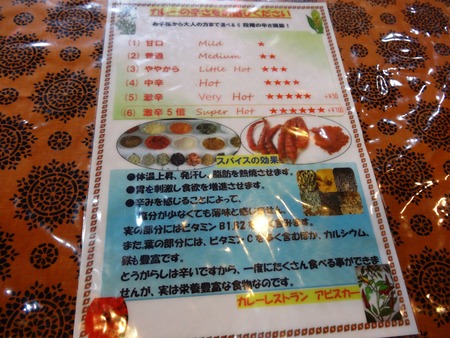 カレーの辛さをお選びください
お子様から大人の方まで選べる6段階の辛さ調整！
(1) 甘口 Mild ★
(2) 普通 Medium ★★
(3) ややから Little Hot ★★★
(4) 中辛 Hot ★★★★
(5) 激辛 Very Hot ★★★★★
(6) 激辛5倍 Super Hot ★★★★★★ +¥100
スパイスの効果
●体温上昇、発汗し、脂肪を燃焼させます。
●胃を刺激し食欲を増進させます。
●辛みを感じることによって、
塩分が少なくても薄味と感じません。
実の部分にはビタミン B1,B2を多く含みます。
また、葉の部分には、ビタミン Cを多く含むほか、カルシウム、
鉄も豊富です。
とうがらしは辛いですから、一度にたくさん食べる事ができ
せんが、実は栄養豊富な食物なのです。
カレーレストラン アビスカー